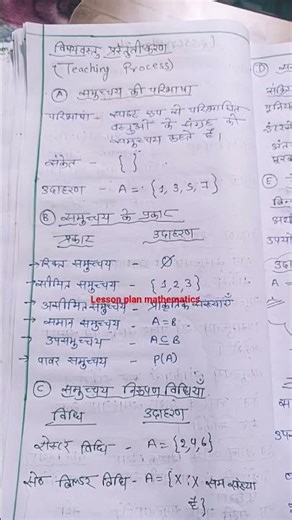 विषयवस्तु प्रस्तुतीकरण
(Teaching Process)
Ⓐ समुच्चय की परिभाषा
परिभाषा - स्पष्ट रूप से परिभाषित
वस्तुओं के संग्रह को
समुच्चय कहते हैं।
संकेत - { }
उदाहरण - A = {1, 3, 5, 7}
Ⓑ समुच्चय के प्रकार
प्रकार उदाहरण
→ रिक्त समुच्चय - Ø
→ सीमित समुच्चय - {1, 2, 3}
Lesson plan mathematics
→ असीमित समुच्चय - प्राकृतिक संख्याएँ
→ समान समुच्चय - A=B
→ उपसमुच्चय - A⊆B
→ पावर समुच्चय - P(A)
Ⓒ समुच्चय निरूपण विधियाँ
विधि उदाहरण
रोस्टर विधि - A = {2, 4, 6}
सेट बिल्डर विधि - A = {x : x सम संख्या
है}